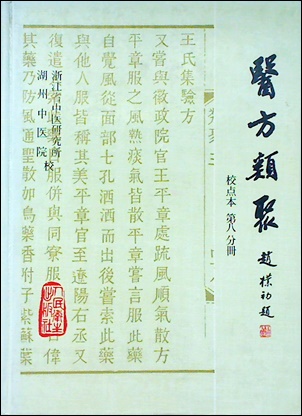 醫方類聚
校点本 第八分册
趙樸初題
王氏集驗方
又嘗與徵政院官王平章處疏風順氣散方
平章服之風熱痰氣皆散平章嘗言服此藥
自覺風從面部七孔洒洒而出後嘗索此藥
與他人服皆稱其美平章官至遼陽右丞又
復遣 服併與同寮服 偉
其藥乃防風通聖散如烏藥香附子紫蘇葉
浙江省中医研究所
湖州中医院
校
人民衛生出版社